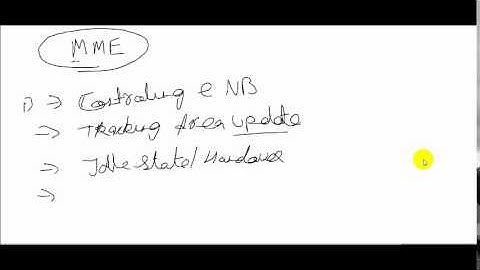 MME
1) → Controling eNB
→ Tracking Area update
→ Idle state/Handover
→